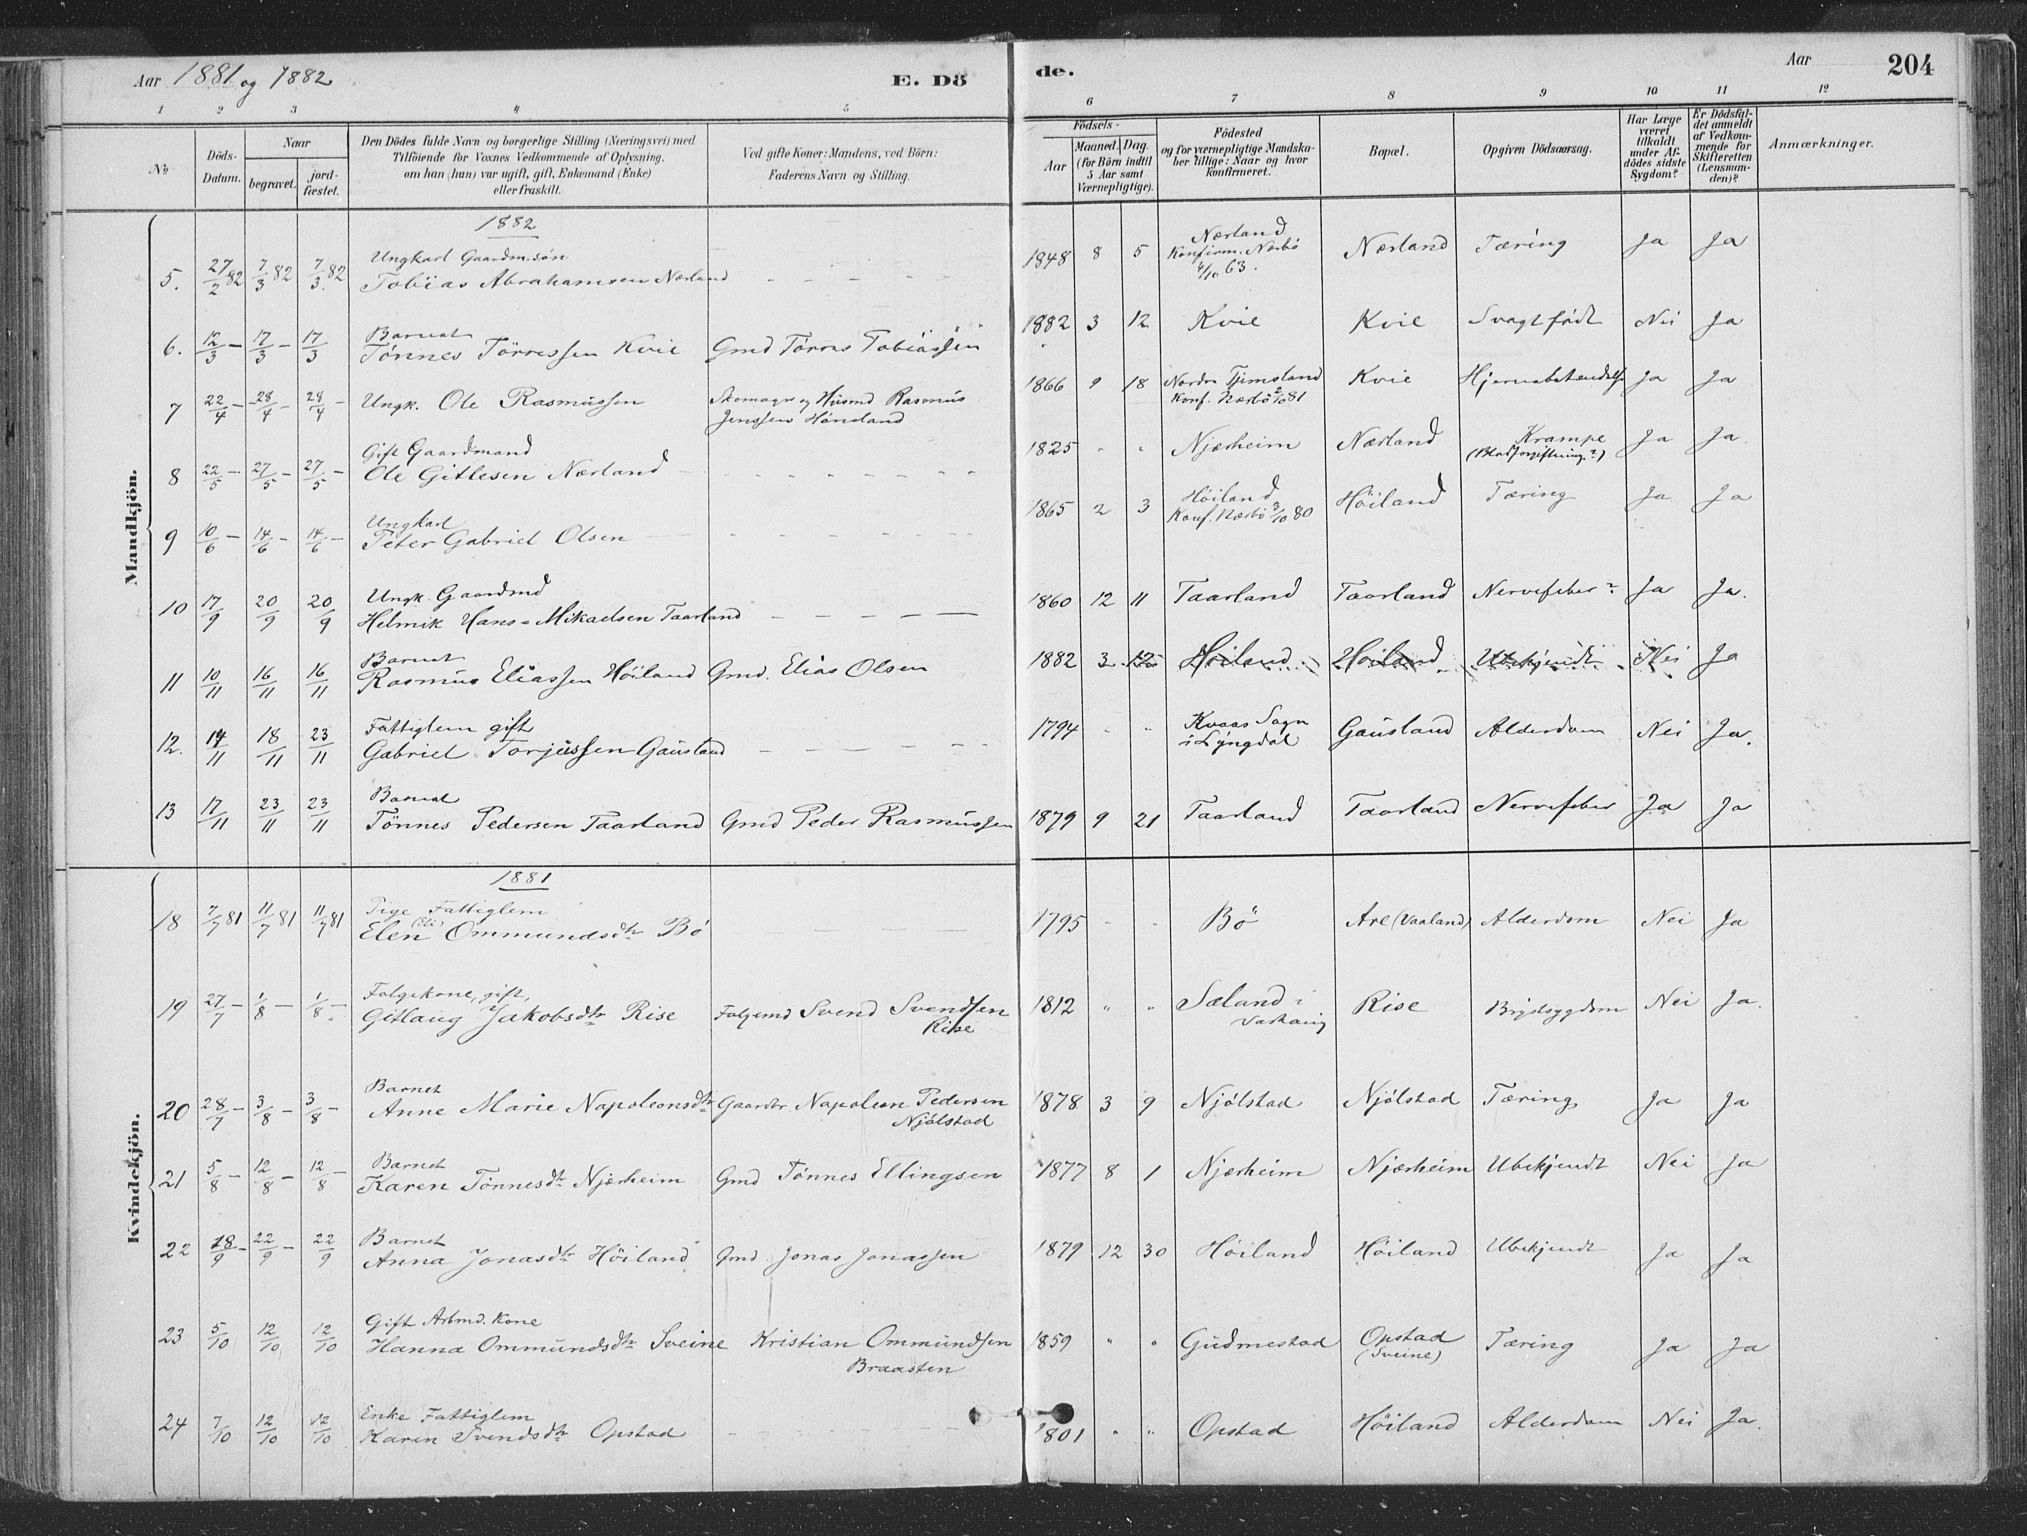 Aar 1881 og 1882 E. Dö de. Aar 204
1 2 3 4 5 6 7 8 9 10 11 12
№ Döds-Datum. Naar begravet. jord-fæstet. Den Dödes fulde Navn og borgerlige Stilling (Næringsvei) med Tilföiende for Voxnes Vedkommende af Oplysning, om han (hun) var ugift, gift, Enkemand (Enke) eller fraskilt. Ved gifte Koner: Mandens, ved Börn: Faderens Navn og Stilling. Födsels- Aar Maaned. Dag. (for Börn indtil 5 Aar samt Værnepligtige). Födested og for værnepligtige Mandskaber tillige: Naar og hvor konfirmeret. Bopæl. Opgiven Dödsaarsag. Har Læge været tilkaldt under Afdödes sidste Sygdom? Er Dödsfaldet anmeldt af Vedkommende for Skifteretten (Lensmanden)? Anmærkninger.
Mandkjön.
1882
5. 27/2 82 7/3 82 7/3 82 Ungkarl Gaardm.søn
Tobias Abrahamsen Nærland 1848 8 5 Nærland Konfirm. Nærbø 4/10 63. Nærland Tæring Ja Ja
6. 12/3 17/3 17/3 Barnet
Tønnes Törressen Kvie Gmd Törres Tobiassen 1882 3 12 Kvie Kvie Svagt født Nei Ja
7 22/4 28/4 28/4 Ungk. Ole Rasmussen Skomager og Husmd Rasmus Jenssen Høneland 1866 9 18 Nordre Tjemsland Konf. Nærbø 2/10 81 Kvie Hjernebetændelse Ja Ja
8 22/5 27/5 27/5 Gift Gaardmand
Ole Gitlesen Nærland 1825 " " Njærheim Nærland Krampe (Blodforgiftning?) Ja Ja
9 10/6 14/6 14/6 Ungkarl
Peter Gabriel Olsen 1865 2 3 Höiland Konf. Nærbø 3/10 80 Höiland Tæring Ja Ja
10 17/9 20/9 20/9 Ungk. Gaardmd
Helmik Hans-Mikaelsen Taarland 1860 12 11 Taarland Taarland Nervefeber? Ja Ja.
11 10/11 16/11 16/11 Barnet
Rasmus Eliassen Höiland Gmd. Elias Olsen 1882 3 12 Höiland Höiland Ubekjendt Nei Ja
12. 14/11 18/11 23/11 Fattiglem gift
Gabriel Torjussen Gausland 1794 " " Kvaas Sogn i Lyngdal Gausland Alderdom Nei Ja.
13 17/11 23/11 23/11 Barnet
Tönnes Pedersen Taarland Gmd Peder Rasmussen 1879 9 21 Taarland Taarland Nervefeber Ja Ja
Kvindekjön.
1881
18 7/7 81 11/7 81 11/7 81 Pige Fattiglem
Elen (Eli) Ommundsdtr Bö 1795 Bö Are (Vaaland) Alderdom Nei Ja
19 27/7 1/8 1/8 Folgekone, gift,
Gitlaug Jakobsdtr Rise Folgemd Svend Svendsen Rise 1812 " " Sæland i Varhaug Rise Brystsygdom Nei Ja.
20 28/7 3/8 3/8 Barnet
Anne Marie Napoleonsdtr Gaardbr Napoleon Pedersen Njölstad 1878 3 9 Njölstad Njölstad Tæring Ja Ja
21 5/8 12/8 12/8 Barnet
Karen Tönnesdtr Njærheim Gmd Tönnes Ellingsen 1877 8 1 Njærheim Njærheim Ubekjendt Nei Ja
22 18/9 22/9 22/9 Barnet
Anna Jonasdtr Höiland Gmd Jonas Jonassen 1879 12 30 Höiland Höiland Ubekjendt Ja Ja
23 5/10 12/10 12/10 Gift Arbmd. Kone
Hanna Ommundsdtr Sveine Kristian Ommundsen Braasten 1859 " " Gudmestad Opstad (Sveine) Tæring Ja Ja
24 7/10 12/10 12/10 Enke Fattiglem
Karen Svendsdtr Opstad 1801 " " Opstad Höiland Alderdom Nei Ja